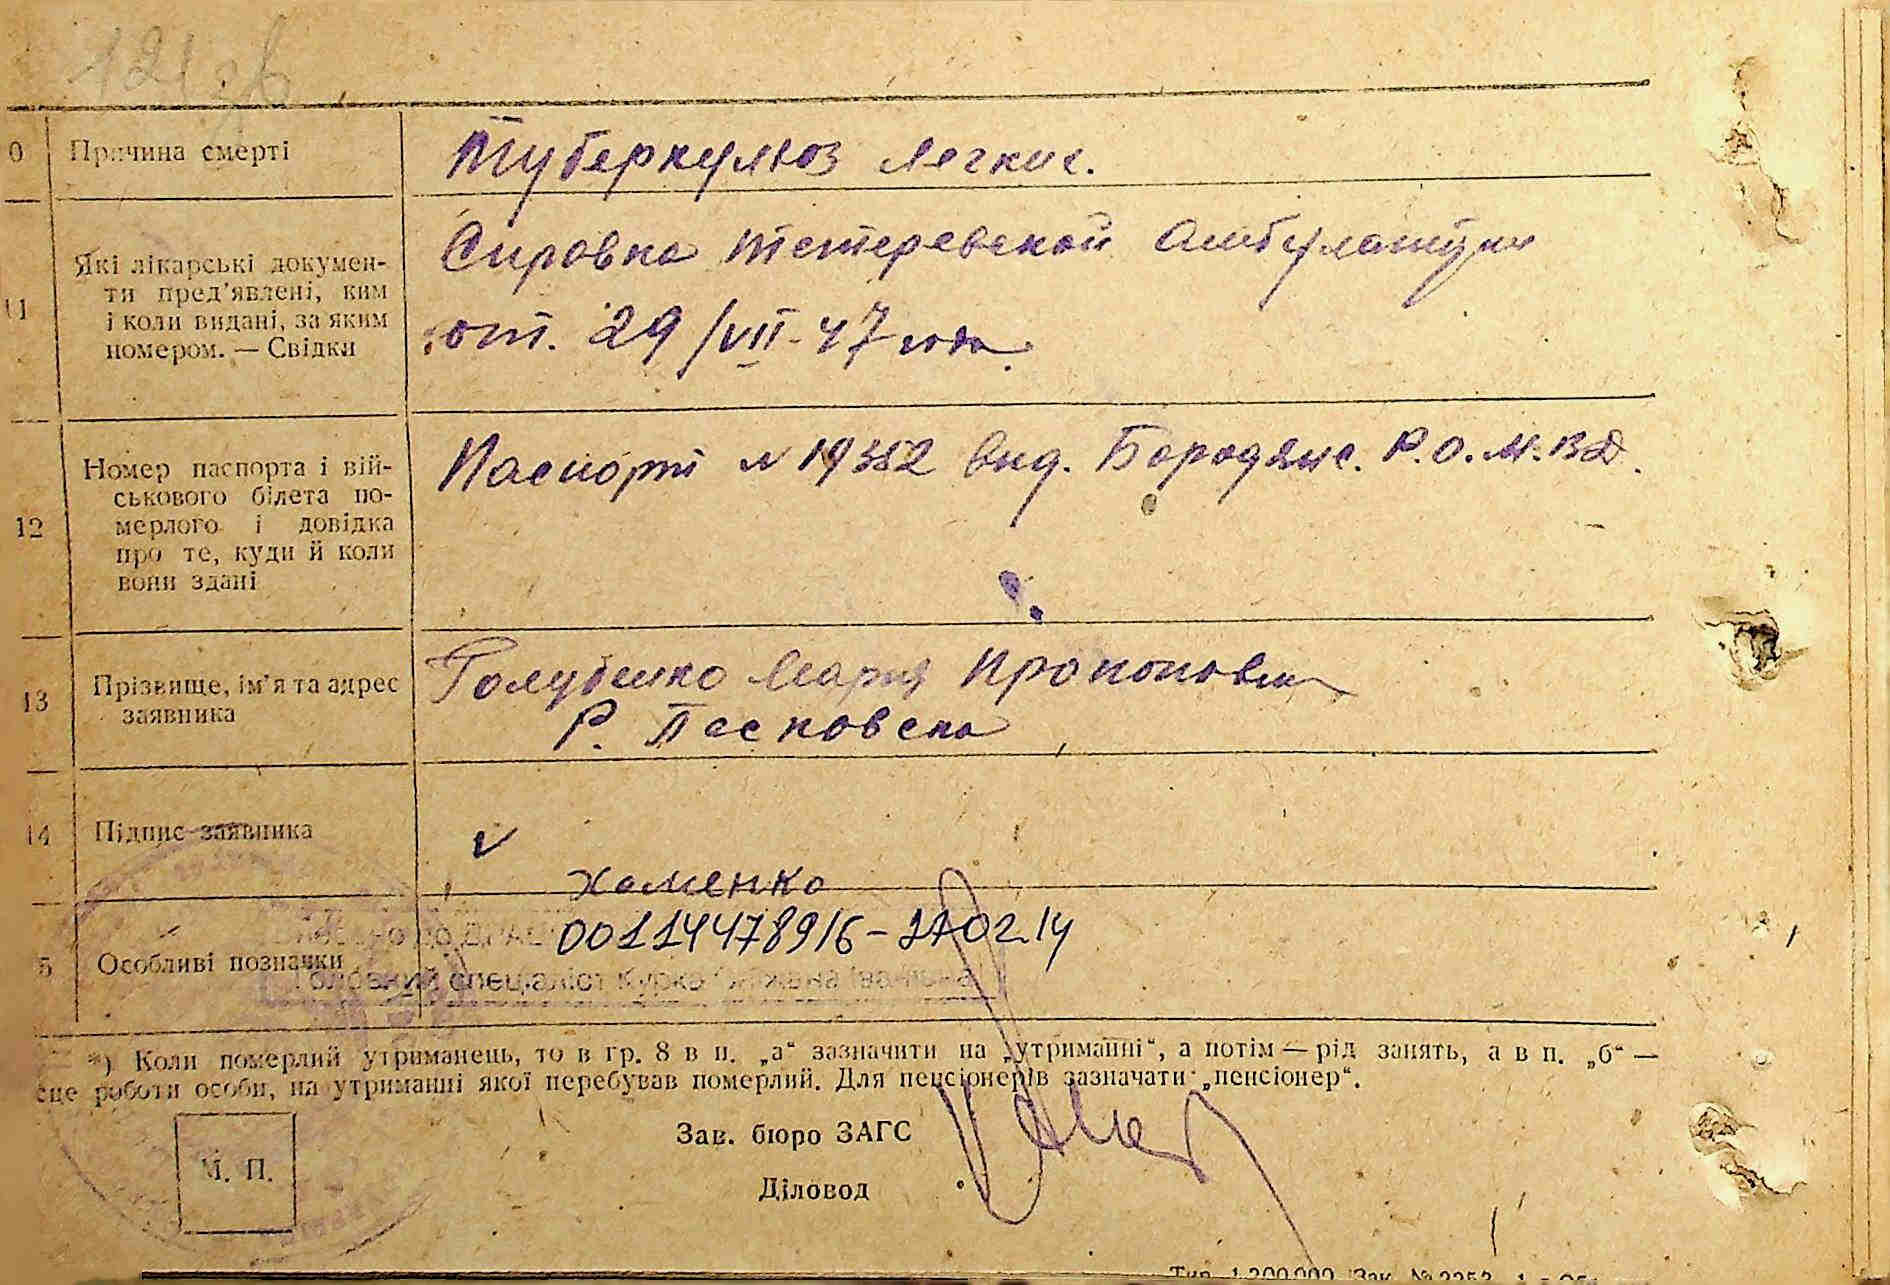 Причина смерті
Туберкулюз легких.
11
Які лікарські докумен-
ти пред'явлені, ким
і коли видані, за яким
номером. — Свідки
Справка Тетеревской Амбулатории
от. 29/VII-47 года.
12
Номер паспорта і вій-
ськового білета по-
мерлого і довідка
про те, куди й коли
вони здані
Паспорт № 19352 вид. Бородянс. Р.О.М.ВД.
13
Прізвище, ім'я та адрес
заявника
Голубенко Мария Прокоповна
Р. Пасковска
14
Підпис заявника
Хоменко
5
Особливі позначки
00114478916-
*) Коли померлий утриманець, то в гр. 8 в п. „а“ зазначити на „утриманні“, а потім — рід занять, а в п. „б“ —
сце роботи особи, на утриманні якої перебував померлий. Для пенсіонерів зазначати „пенсіонер“.
Зав. бюро ЗАГС
М. П.
Діловод